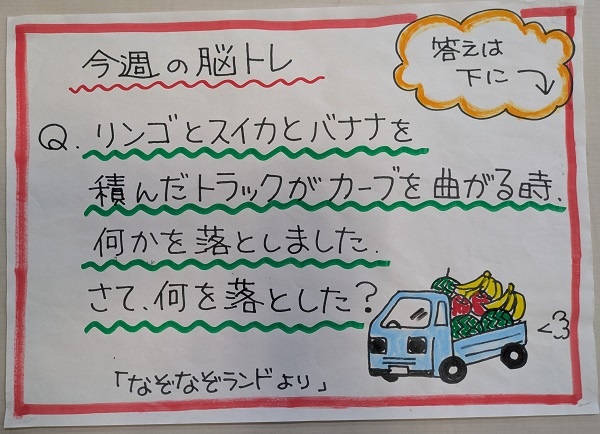 今週の脳トレ
答えは
下に
Q. リンゴとスイカとバナナを
積んだトラックがカーブを曲がる時、
何かを落としました.
さて、何を落とした？
「なぞなぞランドより」